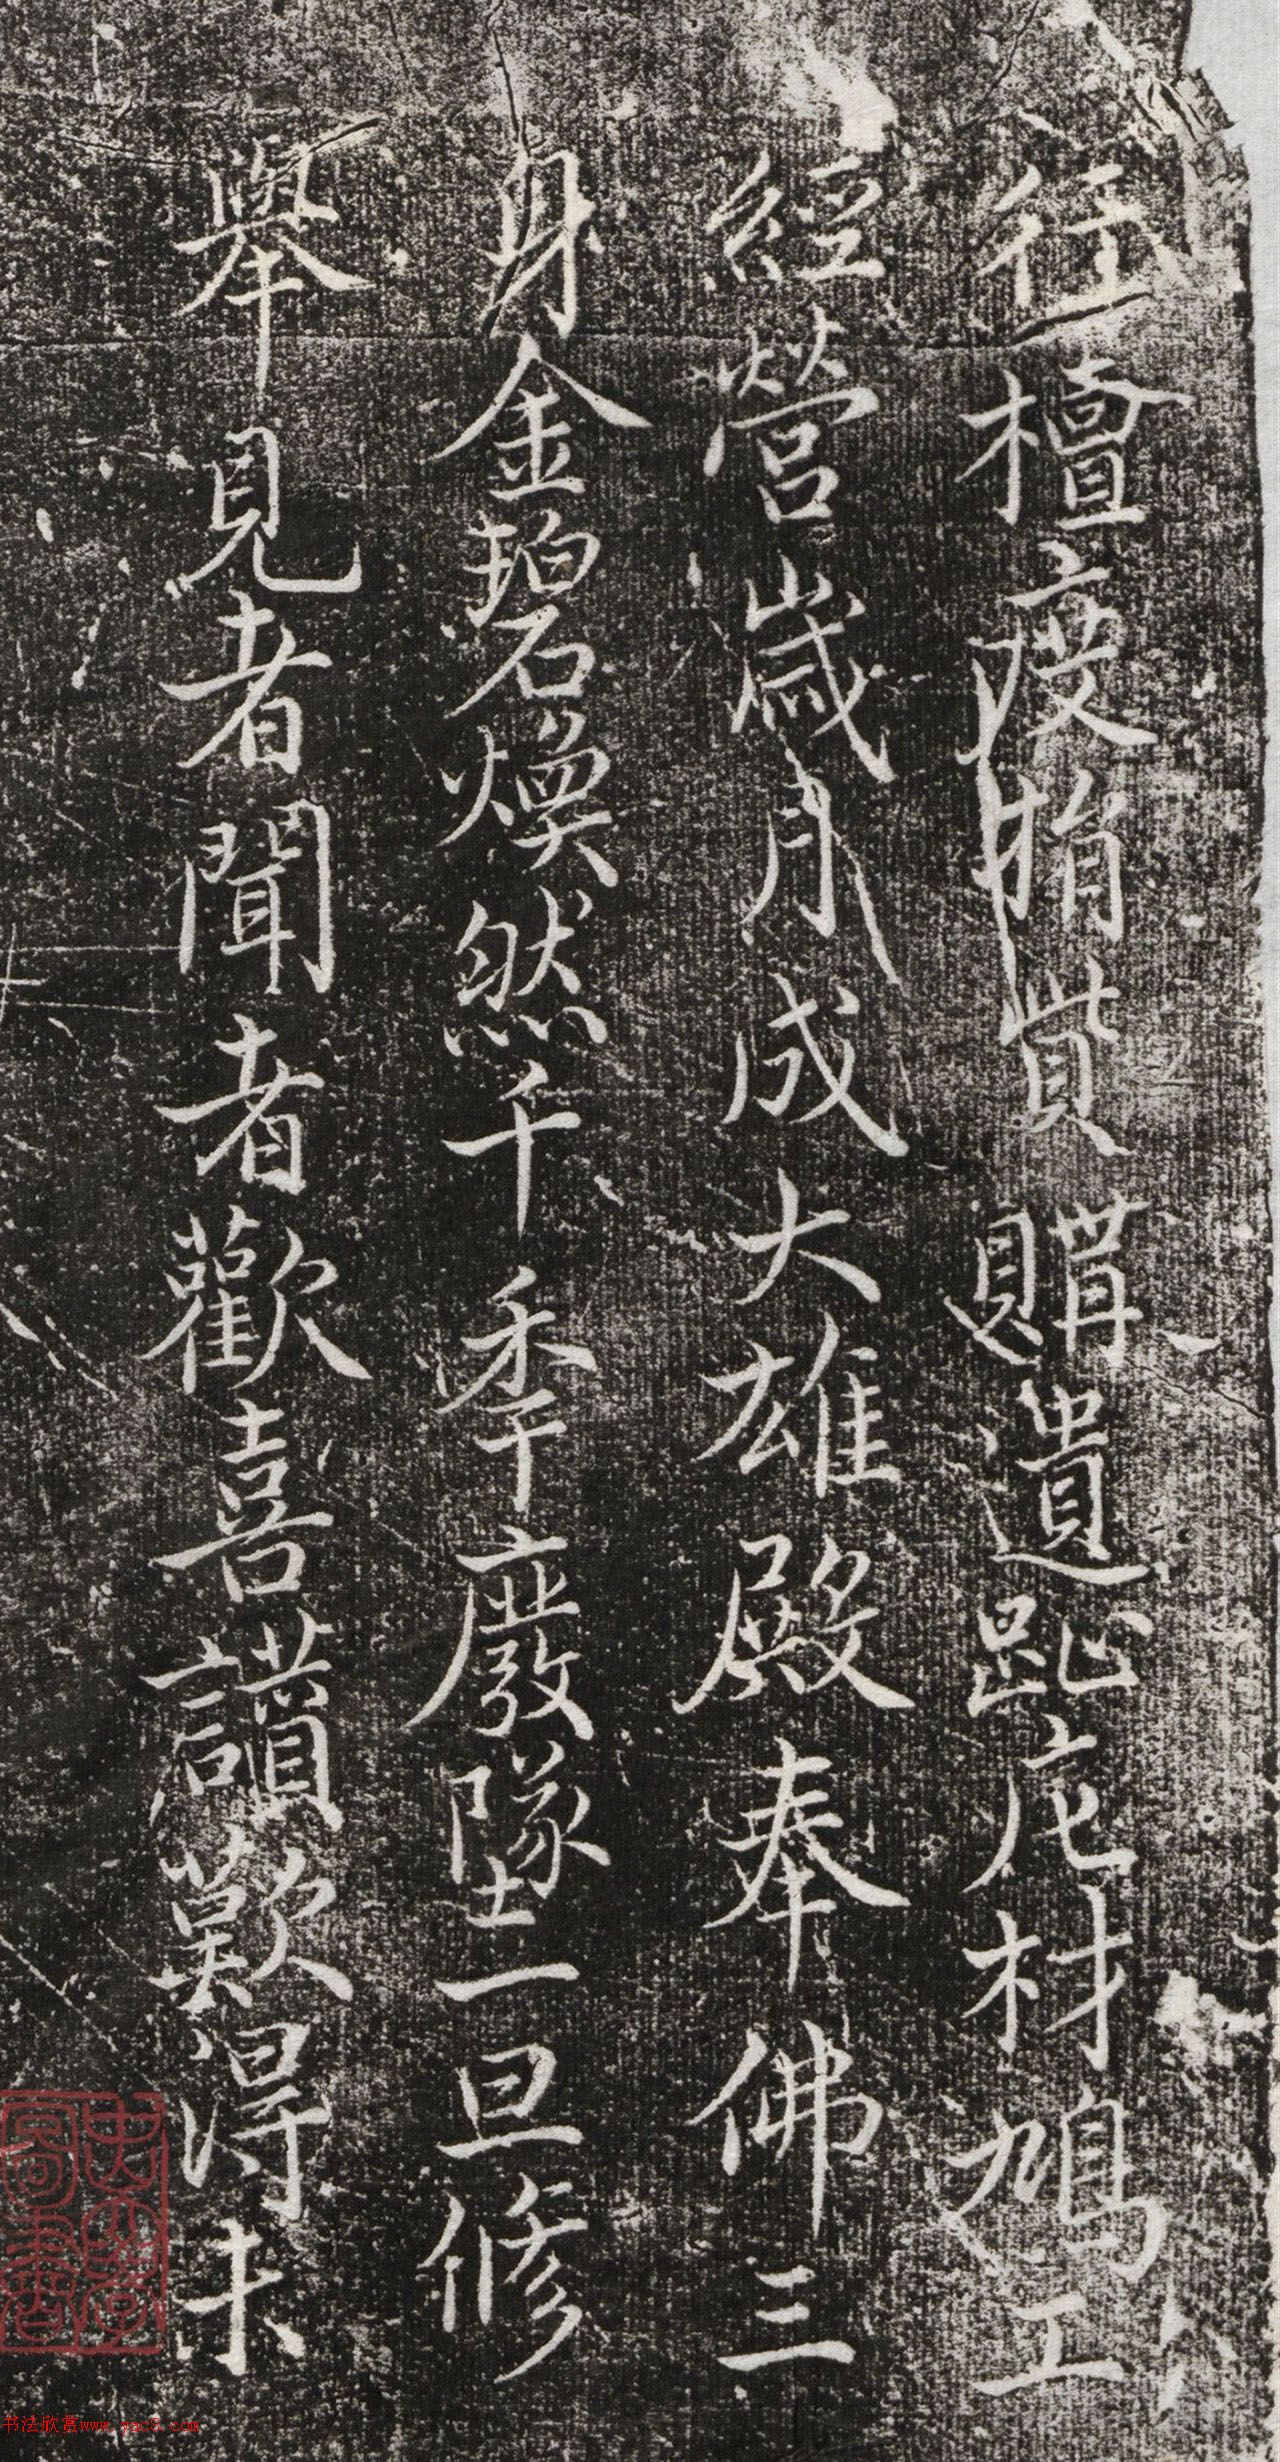 往檀度捐貲購遺趾庀材鳩工
經營歲月成大雄殿奉佛三
身金碧煥然千秊廢墜一旦修
舉見者聞者歡喜讃歎得未
书法欣赏www.yac8.com